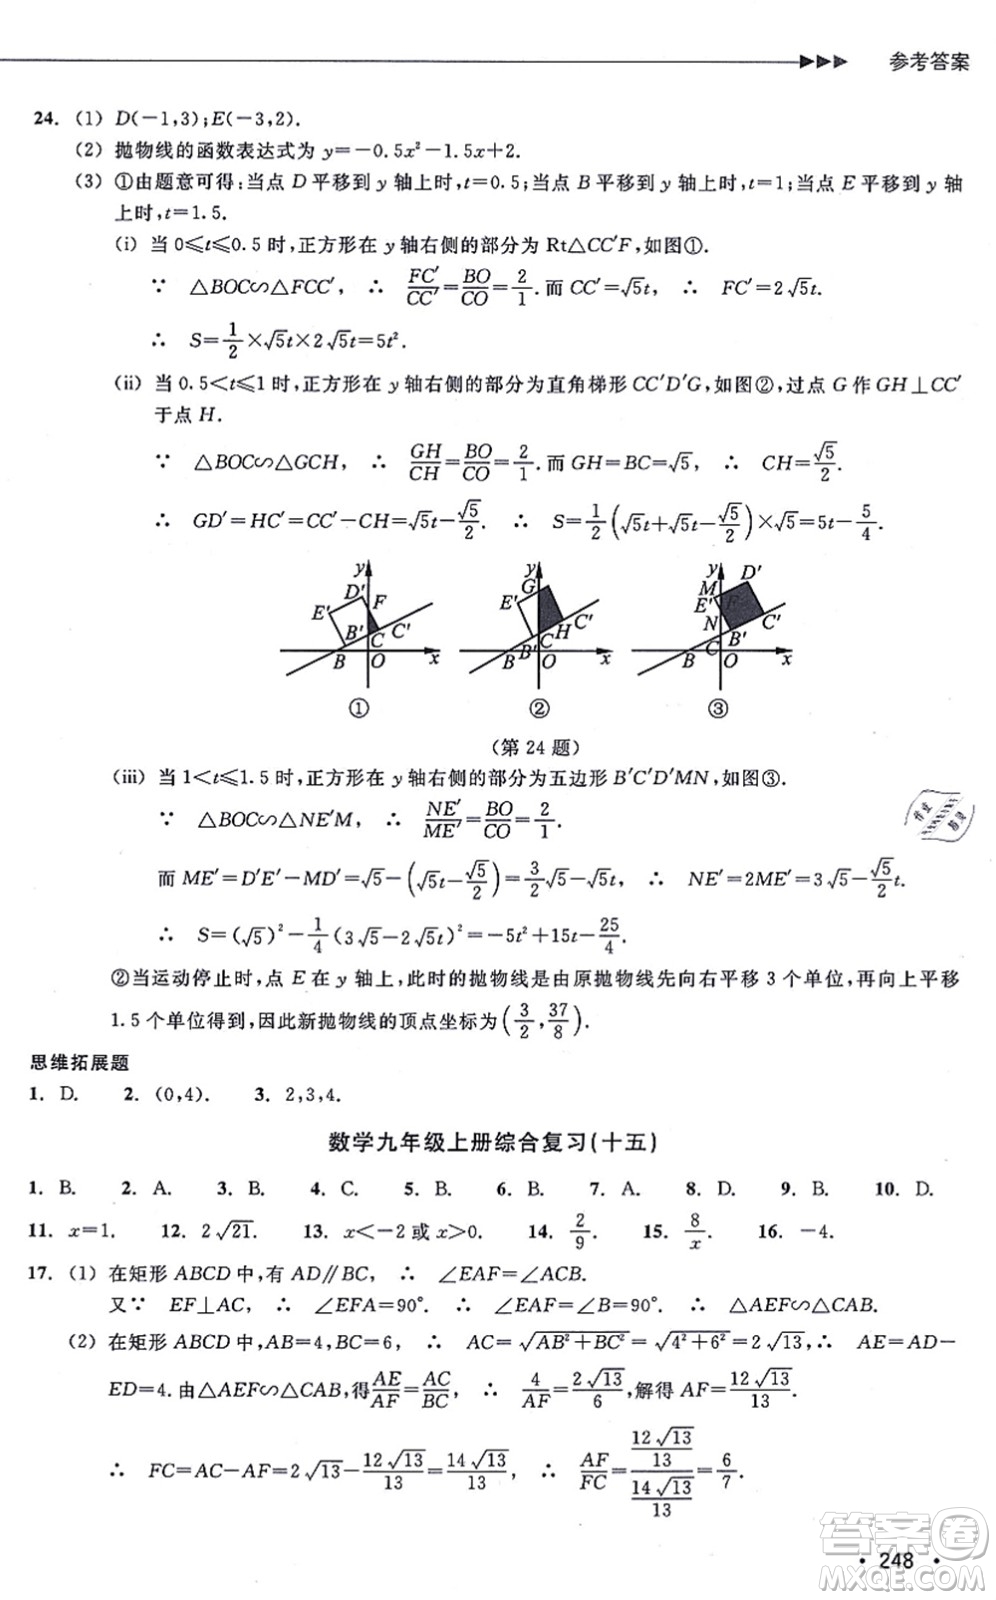 参考答案
24. (1) D(-1,3);E(-3,2).
(2) 抛物线的函数表达式为 y=-0.5x²-1.5x+2.
(3) ①由题意可得:当点 D 平移到 y 轴上时,t=0.5;当点 B 平移到 y 轴上时,t=1;当点 E 平移到 y 轴
上时,t=1.5.
(i) 当 0≤t≤0.5 时,正方形在 y 轴右侧的部分为 Rt△CC′F,如图①.
∵ △BOC∽△FCC′, ∴ FC′/CC′=BO/CO=2/1.而 CC′=√5t, ∴ FC′=2√5t.
∴ S=1/2×√5t×2√5t=5t².
(ii) 当 0.5<t≤1 时,正方形在 y 轴右侧的部分为直角梯形 CC′D′G,如图②,过点 G 作 GH⊥CC′
于点 H.
∵ △BOC∽△GCH, ∴ GH/CH=BO/CO=2/1.而 GH=BC=√5, ∴ CH=√5/2.
∴ GD′=HC′=CC′-CH=√5t-√5/2. ∴ S=1/2(√5t+√5t-√5/2)×√5=5t-5/4.
y D′ F E′ B′ C C′ B O x
y G E′ H C′ B′ C B O x
y M D′ E′ F N C′ C B′ B O x
① ② ③
(第 24 题)
(iii) 当 1<t≤1.5 时,正方形在 y 轴右侧的部分为五边形 B′C′D′MN,如图③.
∵ △BOC∽△NE′M, ∴ NE′/ME′=BO/CO=2/1.
而 ME′=D′E′-MD′=√5-(√5t-√5/2)=3/2√5-√5t, ∴ NE′=2ME′=3√5-√5/2t.
∴ S=(√5)²-1/4(3√5-2√5t)²=-5t²+15t-25/4.
②当运动停止时,点 E 在 y 轴上,此时的抛物线是由原抛物线先向右平移 3 个单位,再向上平移
1.5 个单位得到,因此新抛物线的顶点坐标为(3/2,37/8).
思维拓展题
1. D. 2. (0,4). 3. 2,3,4.
数学九年级上册综合复习(十五)
1. B. 2. A. 3. B. 4. C. 5. B. 6. B. 7. A. 8. D. 9. B. 10. D.
11. x=1. 12. 2√21. 13. x<-2 或 x>0. 14. 2/9. 15. 8/x. 16. -4.
17. (1) 在矩形 ABCD 中,有 AD∥BC, ∴ ∠EAF=∠ACB.
又∵ EF⊥AC, ∴ ∠EFA=90°. ∴ ∠EAF=∠B=90°. ∴ △AEF∽△CAB.
(2) 在矩形 ABCD 中,AB=4,BC=6, ∴ AC=√AB²+BC²=√4²+6²=2√13,∴ AE=AD-
ED=4.由△AEF∽△CAB,得AE/AF=AC/BC, ∴ 4/AF=2√13/6,解得 AF=12√13/13.
∴ FC=AC-AF=2√13-12√13/13=14√13/13, ∴ AF/FC=(12√13/13)/(14√13/13)=6/7.
答案卷
MXQE.COM
• 248 •